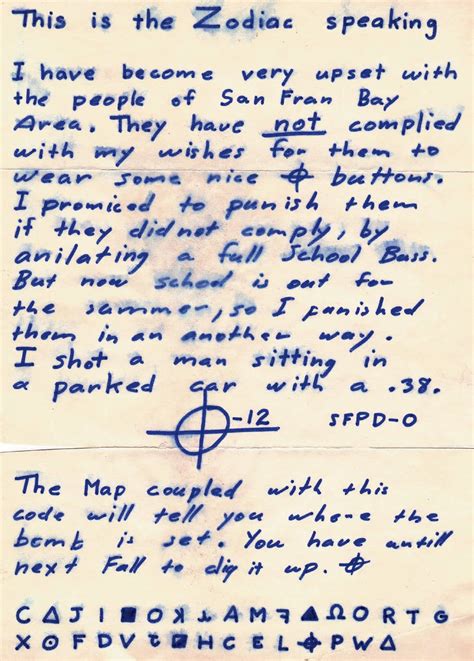 This is the Zodiac speaking
I have become very upset with
the people of San Fran Bay
Area. They have not complied
with my wishes for them to
wear some nice ⌖ buttons.
I promiced to punish them
if they did not comply, by
anilating a full School Buss.
But now school is out for
the sammer, so I punished
them in an another way.
I shot a man sitting in
a parked car with a .38.
⌖-12 SFPD-0
The Map coupled with this
code will tell you where the
bomb is set. You have antill
next Fall to dig it up. ⌖
C Δ J I ■ O K ⅄ A M ꟻ ▲ Ω O R T G
X O F D V ■ H C E L ⌖ P W Δ